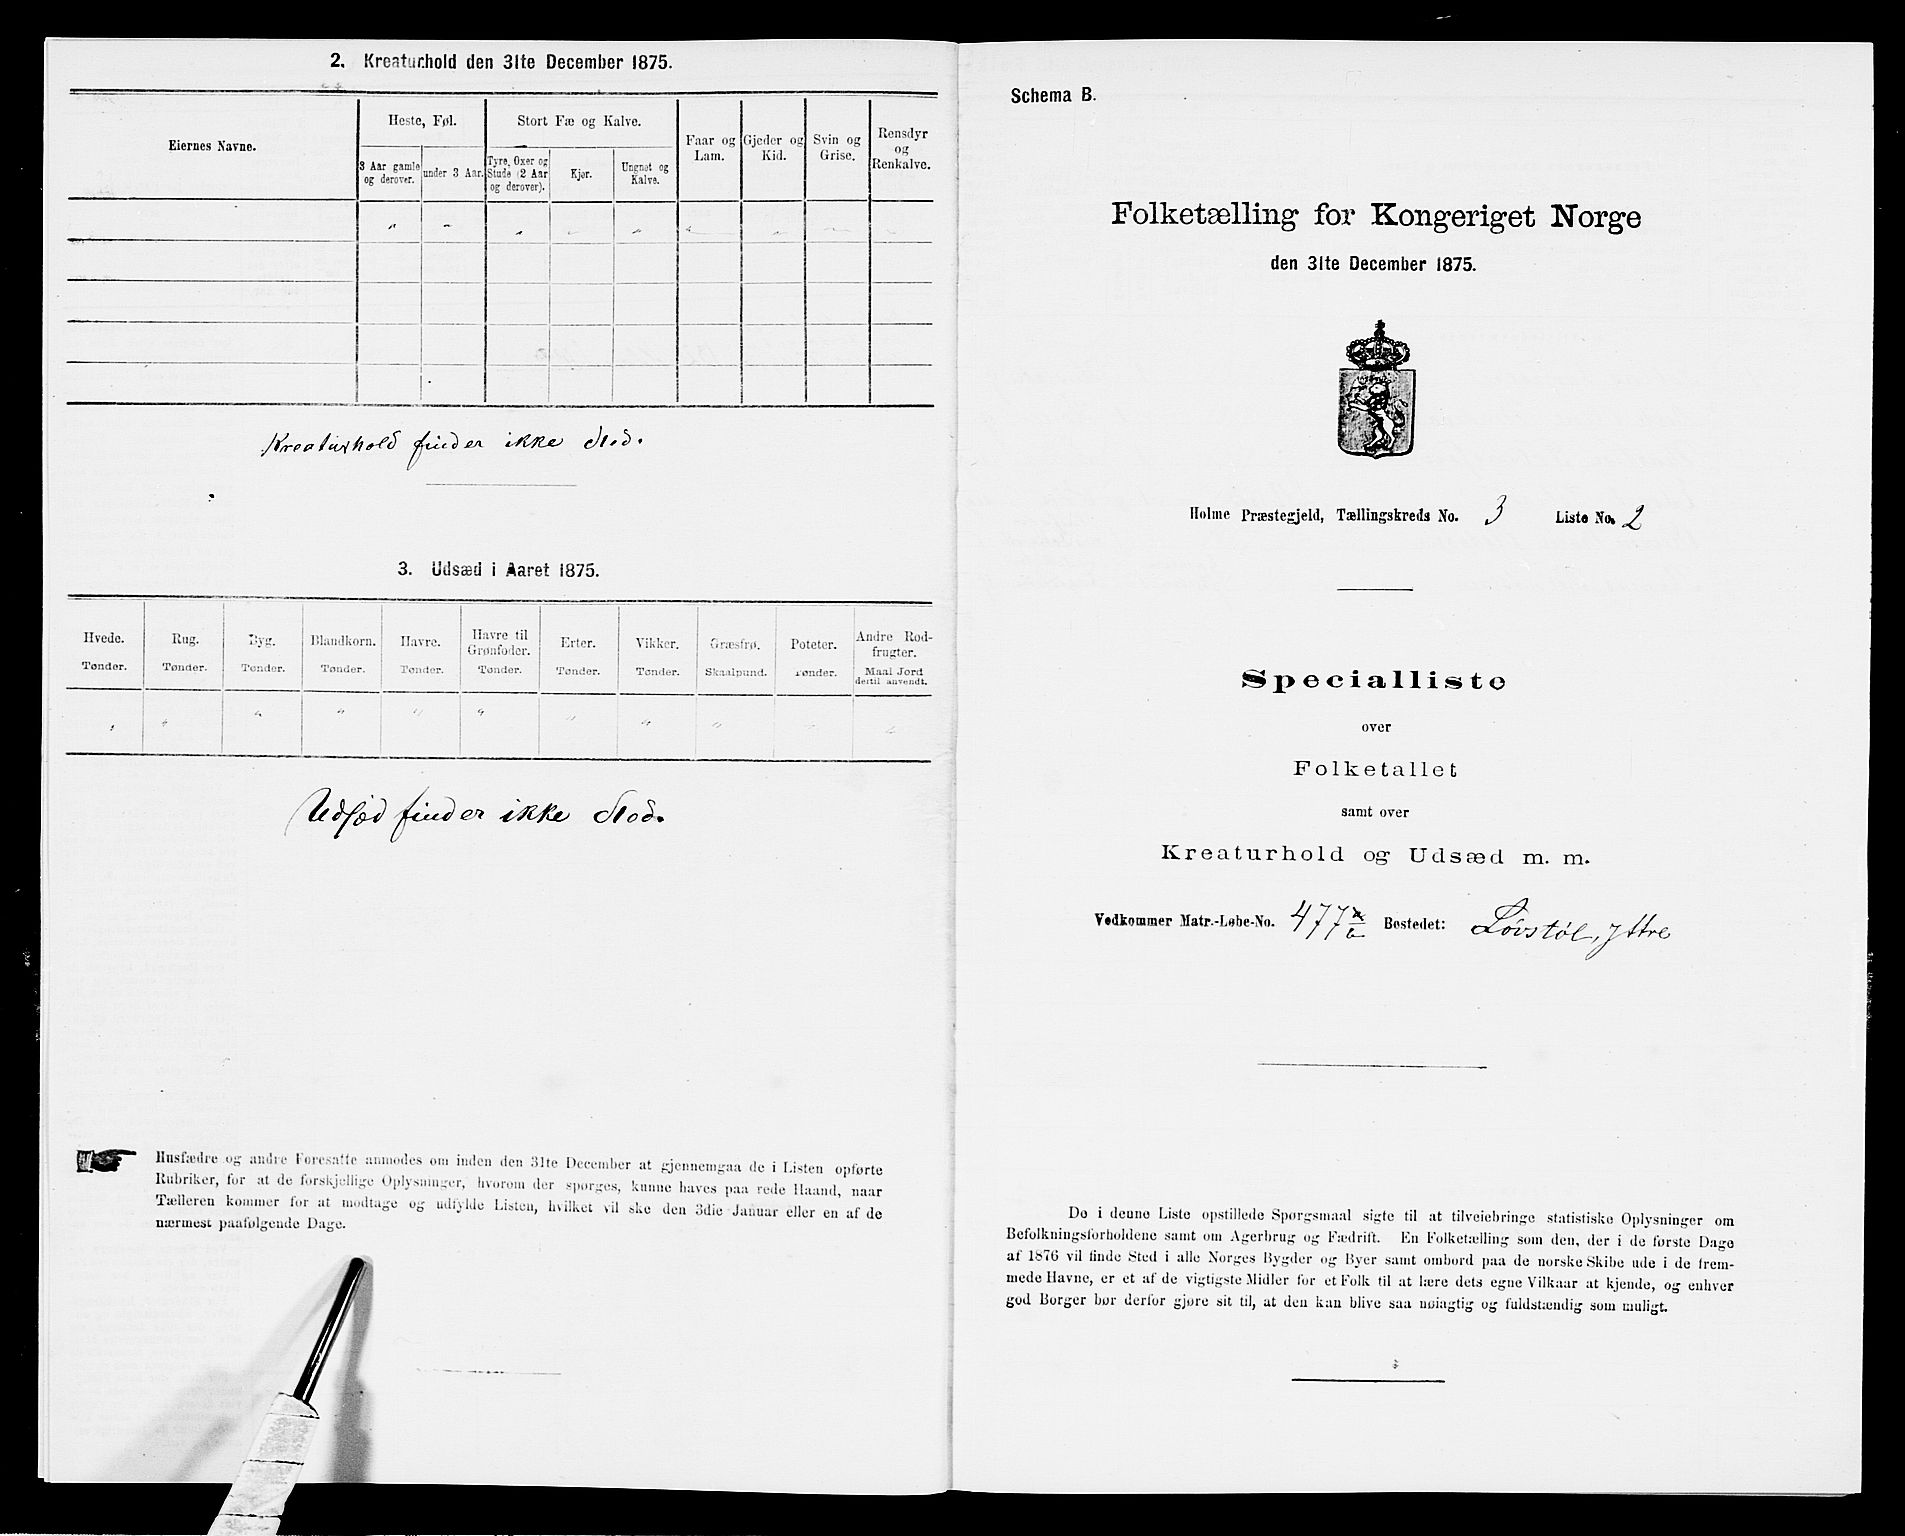 2. Kreaturhold den 31te December 1875.
Eiernes Navne.
Heste, Føl.
Stort Fæ og Kalve.
Faar og Lam.
Gjeder og Kid.
Svin og Grise.
Rensdyr og Renkalve.
3 Aar gamle og derover.
under 3 Aar.
Tyre, Oxer og Stude (2 Aar og derover).
Kjør.
Ungnøt og Kalve.
Kreaturhold finder ikke Sted.
3. Udsæd i Aaret 1875.
Hvede. Rug. Byg. Blandkorn. Havre. Havre til Grønfoder. Erter. Vikker. Græsfrø. Poteter. Andre Rodfrugter.
Tønder. Tønder. Tønder. Tønder. Tønder. Tønder. Tønder. Tønder. Skaalpund. Tønder. Maal Jord dertil anvendt.
Udsæd finder ikke Sted.
Husfædre og andre Foresatte anmodes om inden den 31te December at gjennemgaa de i Listen opførte
Rubriker, for at de forskjellige Oplysninger, hvorom der spørges, kunne haves paa rede Haand, naar
Tælleren kommer for at modtage og udfylde Listen, hvilket vil ske den 3die Januar eller en af de
nærmest paafølgende Dage.
Schema B.
Folketælling for Kongeriget Norge
den 31te December 1875.
Holme Præstegjeld, Tællingskreds No. 3 Liste No. 2
Specialliste
over
Folketallet
samt over
Kreaturhold og Udsæd m. m.
Vedkommer Matr.-Løbe-No. 477 Bostedet: Løvstøl, Ytre
De i denne Liste opstillede Spørgsmaal sigte til at tilveiebringe statistiske Oplysninger om
Befolkningsforholdene samt om Agerbrug og Fædrift. En Folketælling som den, der i de første Dage
af 1876 vil finde Sted i alle Norges Bygder og Byer samt ombord paa de norske Skibe ude i de frem-
mede Havne, er et af de vigtigste Midler for et Folk til at lære dets egne Vilkaar at kjende, og enhver
god Borger bør derfor gjøre sit til, at den kan blive saa nøiagtig og fuldstændig som muligt.